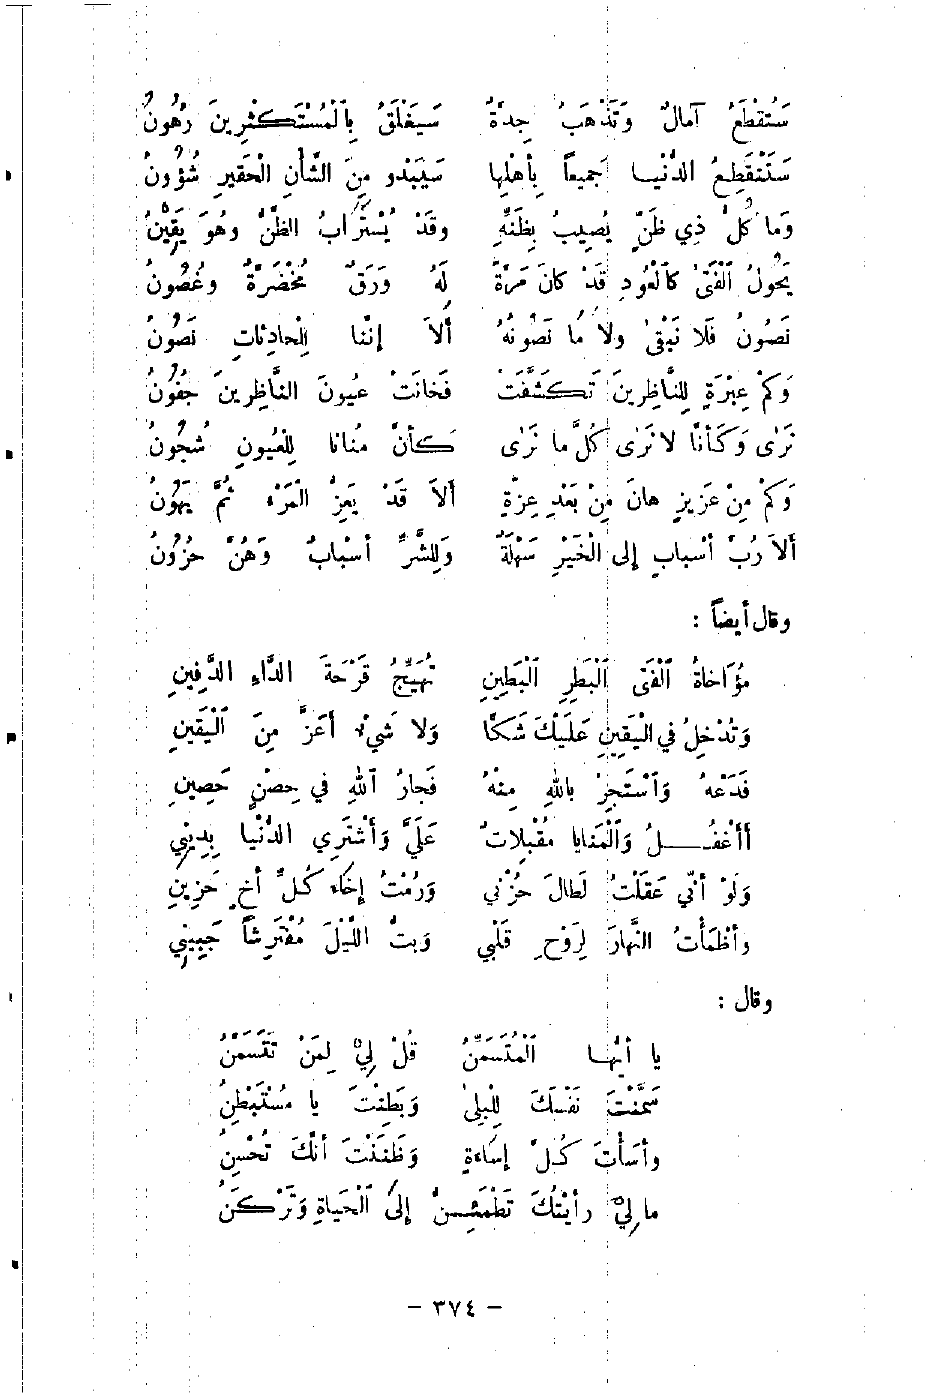 سَتُقْطَعُ آمالٌ وَتَذْهَبُ جِدَّةٌ سَيَغْلَقُ بِٱلْمُسْتَكْثِرِينَ رُهُونُ
سَتَنْقَطِعُ الدُّنْيا جَميعاً بِأهْلِها سَيَبْدو مِنَ الشَّأنِ الْحَقيرِ شُؤُونُ
وَما كُلُّ ذِي ظَنٍّ يُصِيبُ بِظَنِّهِ وقَدْ يُسْتَرابُ الظَّنُّ وهُوَ يَقِيْنُ
يَحُولُ ٱلْفَتَىٰ كٱلْعُودِ قَدْ كانَ مَرَّةً لَهُ وَرَقٌ مُخْضَرَّةٌ وغُصُونُ
نَصُونُ فَلا نَبْقىٰ ولا ما نَصُونُهُ ألاَ إنَّنا لِلْحادِثاتِ نَصُونُ
وَكَمْ عِبْرَةٍ لِلنَّاظِرِينَ تَكَشَّفَتْ فَخانَتْ عُيونَ النَّاظِرِينَ جفُونُ
نَرَى وَكَأنَّا لا نَرَى كُلَّ ما نَرَى كَأنَّ مُنانا لِلْعُيونِ شُجُونُ
وَكَمْ مِنْ عَزيزٍ هانَ مِنْ بَعْدِ عِزَّةٍ ألاَ قَدْ يَعِزُّ الْمَرْءُ ثُمَّ يَهُونُ
ألاَ رُبَّ أسْبابٍ إلى الْخَيْرِ سَهْلَةٌ وَلِلشَّرِّ أسْبابٌ وَهُنَّ حُزُونُ
وقال أيضاً :
مُؤَاخاةُ ٱلْفَتَى ٱلْبَطِرِ ٱلْبَطِينِ تُهَيِّجُ قَرْحَةَ الدَّاءِ الدَّفِينِ
وَتُدْخِلُ في الْيَقِينِ عَلَيْكَ شَكًّا وَلا شَيْءٌ أعَزَّ مِنَ ٱلْيَقينِ
فَدَعْهُ وَٱسْتَجِرْ باللهِ مِنْهُ فَجارُ ٱللهِ في حِصْنٍ حَصِينِ
أأغْفُلُ وَٱلْمَنايا مُقْبِلاتٌ عَلَيَّ وَأشْتَرِي الدُّنْيا بِدِيْنِي
وَلَوْ أنّي عَقَلْتُ لَطالَ حُزْني وَرُمْتُ إخَاءَ كُلِّ أخٍ حَزِينِ
وأظْمَأْتُ النَّهارَ لِرَوْحِ قَلْبي وَبِتُّ اللَّيْلَ مُفْتَرِشاً جَبِيْنِي
وقال :
يا أيُّها ٱلْمُتَسَمِّنُ قُلْ لِيْ لِمَنْ تَتَسَمَّنُ
سَمَّنْتَ نَفْسَكَ لِلْبِلىٰ وَبَطِنْتَ يا مُسْتَبْطِنُ
وأسَأْتَ كُلَّ إسَاءَةٍ وَظَنَنْتَ أنَّكَ تُحْسِنُ
ما لِيْ رأيْتُكَ تَطْمَئِـنُّ إلىَ ٱلْحَياةِ وَتَرْكَنُ
– ٣٧٤ –